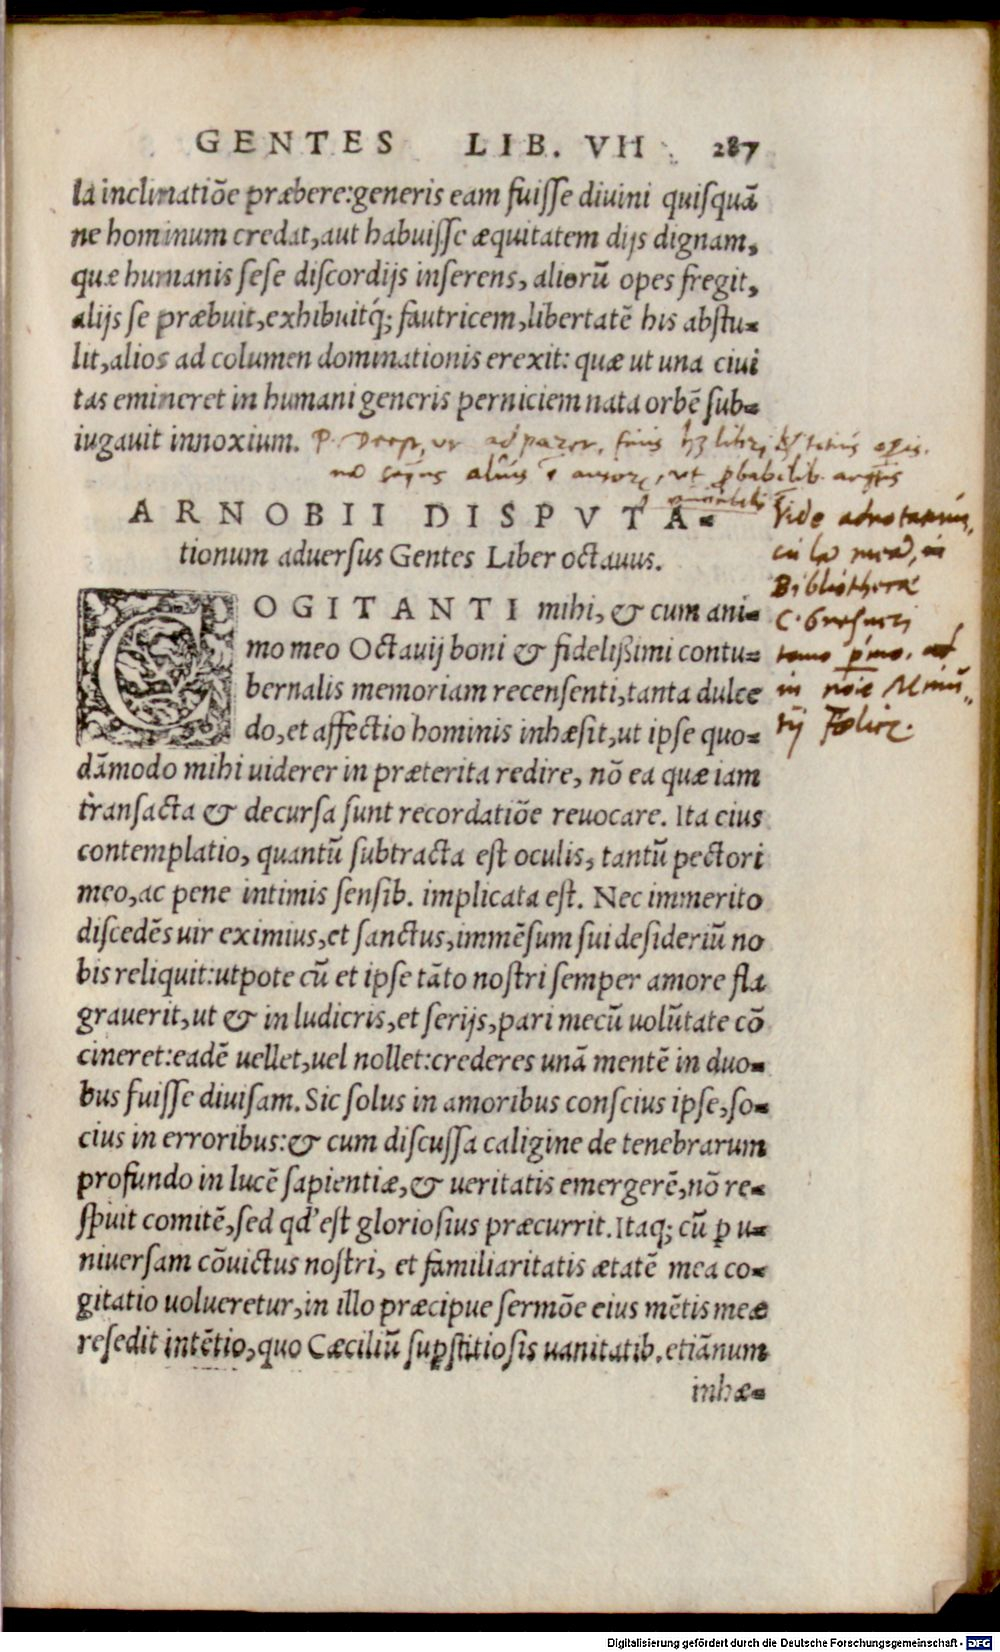 GENTES LIB. VII 287
la inclinatiōe præbere:generis eam fuiſſe diuini quiſquā
ne hominum credat,aut habuiſſe æquitatem dijs dignam,
quæ humanis ſeſe diſcordijs inſerens, aliorū opes fregit,
alijs ſe præbuit,exhibuitq́; fautricem,libertatē his abſtu-
lit,alios ad columen dominationis erexit: quæ ut una ciui
tas emineret in humani generis perniciem nata orbē ſub-
iugauit innoxium.
ARNOBII DISPVTA-
tionum aduerſus Gentes Liber octauus.
COGITANTI mihi, & cum ani-
mo meo Octauij boni & fidelißimi contu-
bernalis memoriam recenſenti,tanta dulce
do,et affectio hominis inhæſit,ut ipſe quo-
dāmodo mihi uiderer in præterita redire, nō ea quæ iam
tranſacta & decurſa ſunt recordatiōe reuocare. Ita eius
contemplatio, quantū ſubtracta eſt oculis, tantū pectori
meo,ac pene intimis ſenſib. implicata eſt. Nec immerito
diſcedēs uir eximius,et ſanctus,immēſum ſui deſideriū no
bis reliquit:utpote cū et ipſe tāto noſtri ſemper amore fla
grauerit,ut & in ludicris,et ſerijs,pari mecū uolūtate cō
cineret:eadē uellet,uel nollet:crederes unā mentē in duo-
bus fuiſſe diuiſam. Sic ſolus in amoribus conſcius ipſe,ſo-
cius in erroribus:& cum diſcuſſa caligine de tenebrarum
profundo in lucē ſapientiæ,& ueritatis emergerē,nō re-
ſpuit comitē,ſed qd' eſt glorioſius præcurrit. Itaq; cū ꝑ u-
niuerſam cōuictus noſtri, et familiaritatis ætatē mea co-
gitatio uolueretur,in illo præcipue ſermōe eius mētis meæ
reſedit intētio,quo Cæciliū ſuꝑſtitioſis uanitatib.etiānum
inhæ-
Vide
in
Bibliotheca
C. Gesneri
tomo primo.
in
Fœlic.
Digitalisierung gefördert durch die Deutsche Forschungsgemeinschaft - DFG